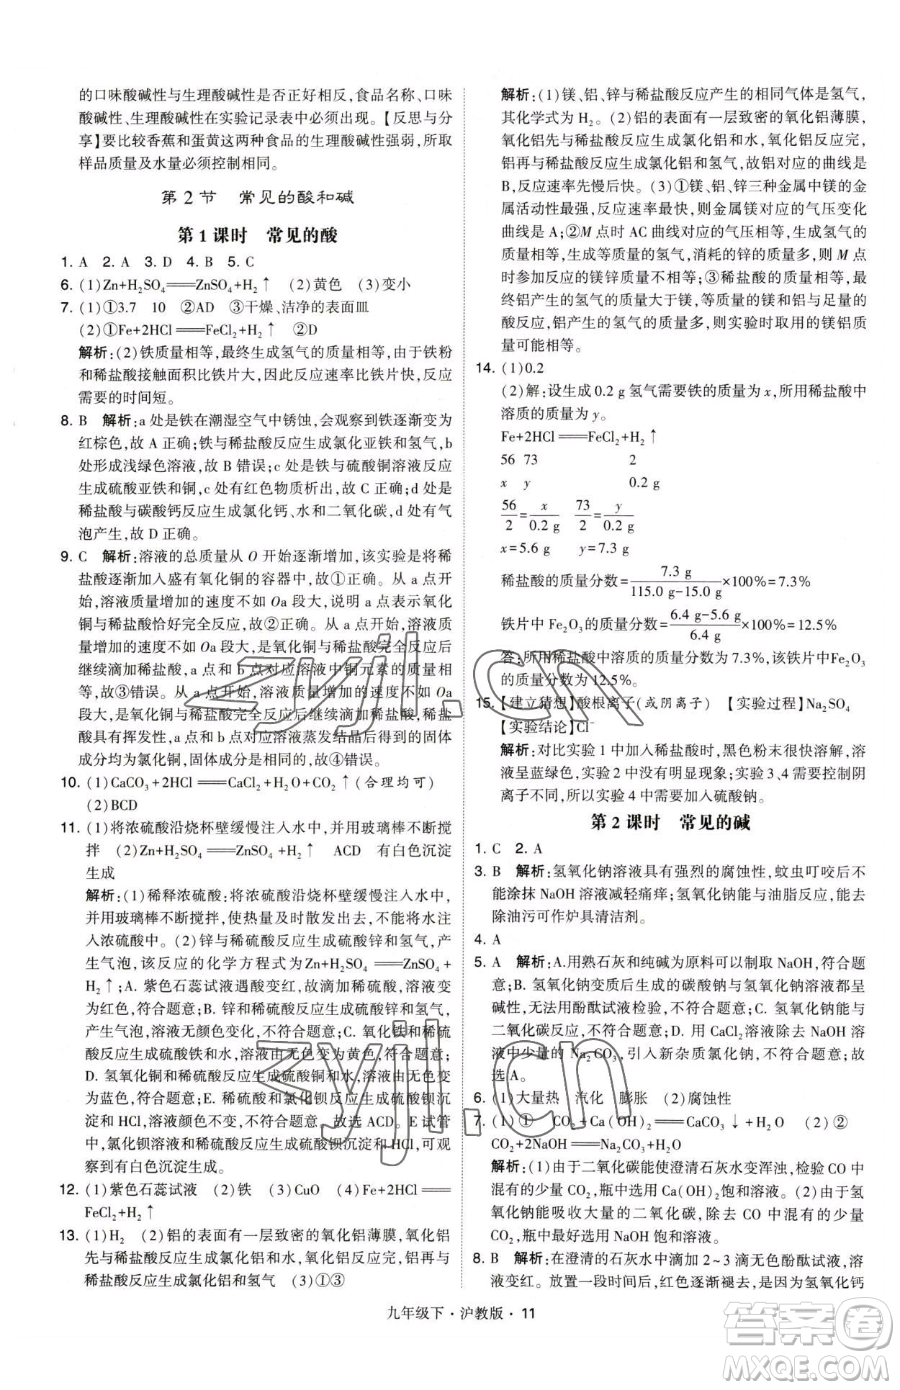 的口味酸碱性与生理酸碱性是否正好相反,食品名称、口味
酸碱性、生理酸碱性在实验记录表中都必须出现。【反思与
分享】要比较香蕉和蛋黄这两种食品的生理酸碱性强弱,所取
样品质量及水量必须控制相同。
第2节 常见的酸和碱
第1课时 常见的酸
1. A 2. A 3. D 4. B 5. C
6. (1)Zn+H₂SO₄══ZnSO₄+H₂↑ (2)黄色 (3)变小
7. (1)①3.7 10 ②AD ③干燥、洁净的表面皿
(2)①Fe+2HCl══FeCl₂+H₂↑ ②D
解析:(2)铁质量相等,最终生成氢气质量相等,由于铁粉
和稀盐酸接触面积比铁片大,因此反应速率比铁片快,需要
的时间短。
8. B 解析:a 处是铁在潮湿空气中锈蚀,会观察到铁逐渐变为
红棕色,故 A 正确;铁与稀盐酸反应生成氯化亚铁和氢气,b
处形成浅绿色溶液,故 B 错误;c处是铁与硫酸铜溶液反应
生成硫酸亚铁和铜,c处有红色物质析出,故 C 正确;d 处是
稀盐酸与碳酸钙反应生成氯化钙、水和二氧化碳,d 处有气
泡产生,故 D 正确。
9. C 解析:溶液的总质量从 O 开始逐渐增加,该实验是将稀
盐酸逐渐加入盛有氧化铜的容器中,故①正确。从 a 点开
始,溶液质量增加的速度不如 Oa 段增加的快,说明 a 点表示氧化
铜与稀盐酸恰好完全反应,故②正确。从 a 点开始,溶液
质量增加的速度不如 Oa 段大,是氧化铜与稀盐酸完全反应后
继续滴加稀盐酸,a 和 b 点对应溶液中铜元素的质量相等,
故③错误。从 a 点开始,溶液质量增加的速度不如 Oa 段
大,是氧化铜与稀盐酸完全反应后继续滴加稀盐酸,稀盐酸
具有挥发性,对 a、b 点溶液蒸发结晶后得到的固体成分均
为氯化铜,固体成分相同,故④错误。
10. (1)CaCO₃+2HCl══CaCl₂+H₂O+CO₂↑(合理均可)
(2)BCD
11. (1)将浓硫酸沿烧杯壁缓慢注入水中,并用玻璃棒不断搅
拌 (2)Zn+H₂SO₄══ZnSO₄+H₂↑ ACD 有白色沉淀
生成
解析:(1)稀释浓硫酸,将浓硫酸沿烧杯壁缓慢注入水中,
并用玻璃棒不断搅拌,使热量及时散发出去,不能将水注
入浓硫酸中。(2)锌与稀硫酸反应生成硫酸锌和氢气,产
生气泡,该反应的化学方程式为 Zn+H₂SO₄══ZnSO₄+
H₂↑;A. 紫色石蕊试液遇酸变红,滴入稀硫酸后,溶液由紫
色变为红色,符合题意;B. 锌和稀硫酸反应生成硫酸锌和氢气,
产生气泡,溶液无颜色变化,不符合题意;C. 氧化铁和稀硫酸
反应生成硫酸铁和水,溶液由无色变为黄色,符合题
意;D. 氢氧化铜和稀硫酸反应生成硫酸铜和水,溶液由无
色变为蓝色,符合题意;E. 稀硫酸和氯化钡反应生成硫酸钡沉
淀和 HCl,溶液颜色不变,不符合题意。故选 ACD。E 试管
中,氯化钡溶液与稀硫酸反应生成硫酸钡沉淀和 HCl,可观
察到有白色沉淀生成。
12. (1)紫色石蕊试液 (2)铁 (3)CuO (4)Fe+2HCl══
FeCl₂+H₂↑
13. (1)H₂ (2)铝的表面有一层致密的氧化铝薄膜,氧化铝
先与稀盐酸反应生成氯化铝和水,氧化铝反应完,铝再与
稀盐酸反应生成氯化铝和氢气 (3)①③
解析:(1)镁、铝、锌与稀盐酸反应产生的相同气体是氢气,
其化学式为 H₂。(2)铝的表面有一层致密的氧化铝薄膜,
氧化铝先与稀盐酸反应生成氯化铝和水,氧化铝反应完,
铝再与稀盐酸反应生成氯化铝和氢气,故铝对应的曲线是
B,反应速率开始慢后来快。(3)①镁、铝、锌三种金属中镁的金
属活动性最强,与稀盐酸反应的速率最快,故对应的气压变化
曲线是 A;②M 点时 AC 曲线对应的气压相等,说明产生
的氢气质量相等,生成等质量的氢气,消耗的锌多,所以 M 点
对应的反应的镁锌质量不相等;③通过题图可以看出,最
终铝产生氢气的质量大于镁,等质量的镁和铝与足量的
酸反应,铝产生的氢气的质量多,所以实验中取用的镁铝质
量可能相等。
14. (1)0.2
(2)解:设生成 0.2 g 氢气需要铁的质量为 x,所用稀盐酸中
溶质的质量为 y。
Fe+2HCl══FeCl₂+H₂↑
56 73 2
x y 0.2 g
56/2=x/0.2 g 73/2=y/0.2 g
x=5.6 g y=7.3 g
稀盐酸的质量分数=7.3 g/(115.0 g-15.0 g)×100%=7.3%
铁片中 Fe₂O₃的质量分数=(6.4 g-5.6 g)/6.4 g×100%=12.5%
答:所用稀盐酸中溶质的质量分数为 7.3%,该铁片中 Fe₂O₃
的质量分数为 12.5%。
15. 【建立猜想】酸根离子(或阴离子) 【实验过程】Na₂SO₄
【实验结论】Cl⁻
解析:对比实验 1 中加入稀盐酸,黑色粉末快速溶解,溶液
变蓝绿色,实验2中无明显现象;实验3、4需要控制阴
离子不同,所以实验 4 中需要加入硫酸钠。
第2课时 常见的碱
1. C 2. A
3. B 解析:氢氧化钠溶液具有强烈的腐蚀性,蚊虫叮咬后,不
能涂抹 NaOH 溶液减轻痛痒;氢氧化钠能与油脂反应,用于
除油污可作炉具清洁剂。
4. A
5. A 解析:A.用熟石灰和纯碱为原料可以制取 NaOH,故
正确,符合题意;B. NaOH 变质后生成的碳酸钠溶液都呈
碱性,无法用酚酞试液检验,不符合题意;C. 氢氧化钠能与
二氧化碳反应,不符合题意;D.用 CaCl₂ 溶液除去 NaOH 溶
液中少量的 Na₂CO₃,引入新杂质氯化钠,不符合题意。故
选 A。
6. (1)大量热 汽化 膨胀 (2)腐蚀性
7. (1)① CO₂+Ca(OH)₂══CaCO₃↓+H₂O (2)②
CO₂+2NaOH══Na₂CO₃+H₂O
解析:(1)由于二氧化碳能使澄清石灰水变浑浊,检验 CO 中
混有的少量 CO₂,应选用 Ca(OH)₂ 饱和溶液。(2)由于氢氧
化钠溶液能吸收大量的二氧化碳,除去 CO 中混有的少量
CO₂,应选用 NaOH 饱和溶液。
8. B 解析:在澄清的石灰水中滴加 2~3 滴无色酚酞试液,溶
液变红。放置一段时间后,红色逐渐褪去,是二氧化碳与氢氧化钙
九年级下·沪教版·11
zyjl.cn
zyjl.cn
答案圈
MXQE.COM